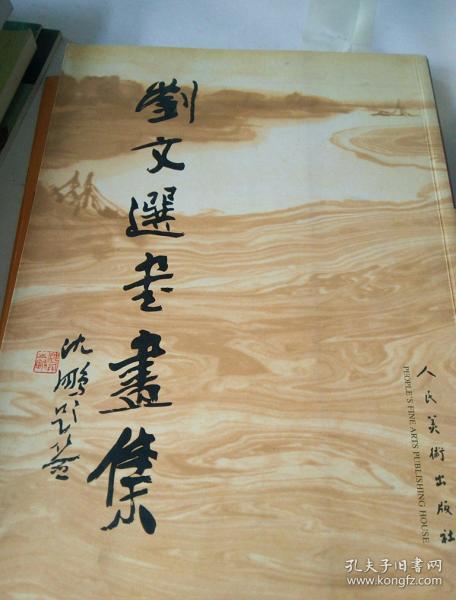 劉文選書畫集
沈鵬題簽
人民美術出版社
PEOPLE'S FINE ARTS PUBLISHING HOUSE
孔夫子旧书网
www.kongfz.com